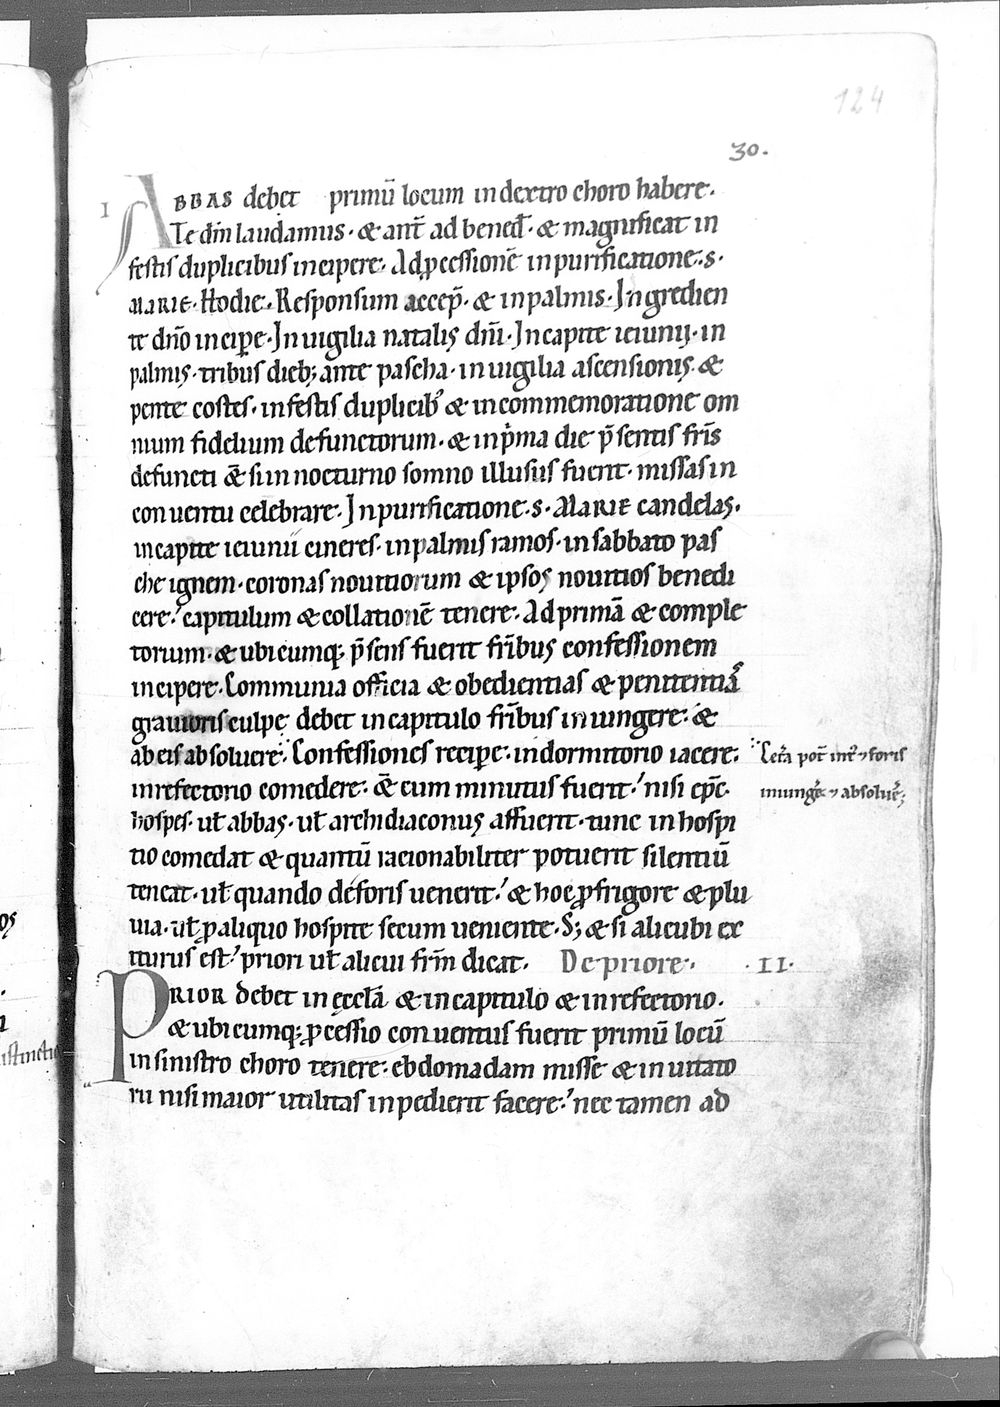 124
30.
I ABBAS debet primū locum in dextro choro habere.
Te dm̄ laudamus · & ant̄ ad bened̄ · & magnificat in
festis duplicibus incipere. Ad ꝓcessionē in purificatione · s ·
MARIE · Hodie. Responsum accep̄ · & in palmis · Ingredien
te dn̄o incipe · In uigilia natalis dn̄i · In capite ieiunij · in
palmis · tribus dieb; ante pascha · in uigilia ascensionis · &
pente costes · in festis duplicib' & in commemoratione om
nium fidelium defunctorum · & in pͥma die p̄sentis fr̄is
defuncti & si in nocturno somno illusus fuerit · missas in
conuentu celebrare. In purificatione · s · MARIE candelas.
in capite ieiunii cineres · in palmis ramos · in sabbato pas
che ignem · coronas nouitiorum & ipsos nouitios benedi
cere. capitulum & collationē tenere. Ad primā & comple
torium · & ubicumq; p̄sens fuerit fr̄ibus confessionem
incipere. Communia officia & obedientias & penitentiā
grauioris culpę debet in capitulo fr̄ibus iniungere. &
ab eis absoluere. Confessiones recipe. in dormitorio iacere.
in refectorio comedere. & cum minutus fuerit. nisi ep̄c
hospes · ut̄ abbas · ut̄ archidiaconus affuerit · tunc in hospi
tio comedat & quantū racionabiliter potuerit silentiū
teneat · ut̄ quando deforis uenerit. & hoc ꝓ frigore & plu
uia · ut̄ ꝓ aliquo hospite secum ueniente. S; & si alicubi ex
iturus est. priori ut̄ alicui fr̄m dicat. De priore. · II ·
PRIOR debet in ęccl̄a & in capitulo & in refectorio.
& ubicumq; ꝓcessio conuentus fuerit primū locū
in sinistro choro tenere. ebdomadam missę & inuitato
rii nisi maior utilitas inpedierit facere. nec tamen ad
pot̄ int̄ ⁊ foris
iniungē ⁊ absoluē;
istinctio